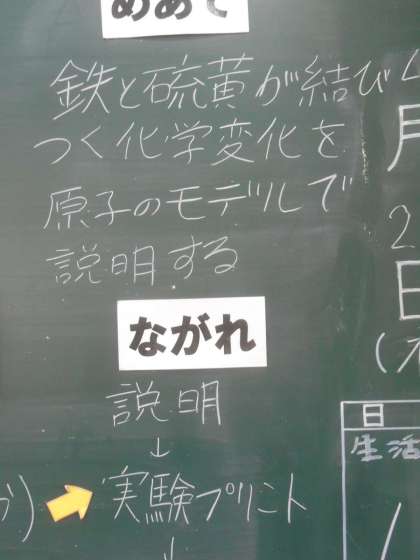 めあて
鉄と硫黄が結び
つく化学変化を
原子のモデルで
説明する
ながれ
説明
↓
実験プリント
↓
月
2
日
日
生活